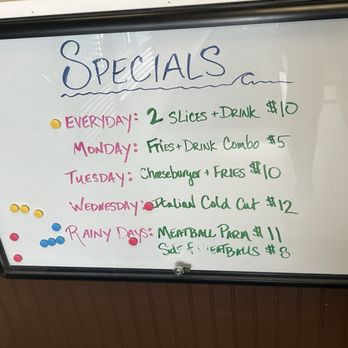 SPECIALS
EVERYDAY: 2 SLICES + DRINK $10
MONDAY: FRIES + DRINK COMBO $5
TUESDAY: Cheeseburger + FRIES $10
WEDNESDAY: Italian Cold Cut $12
RAINY DAYS: MEATBALL PARM $11
SIDE of MEATBALLS $8